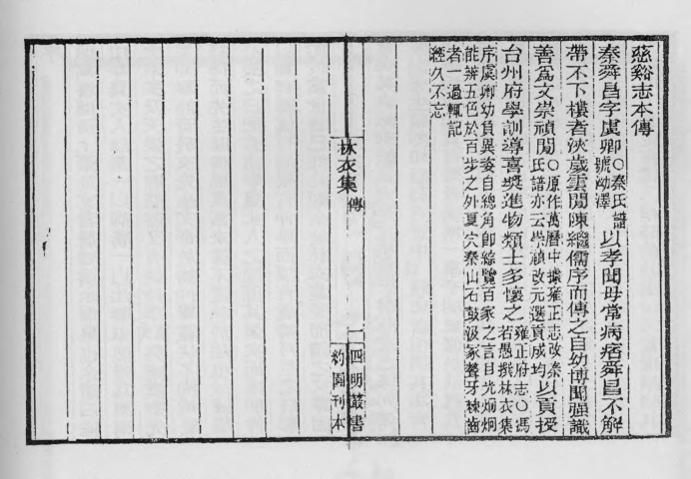 慈谿志本傳
秦舜昌字虞卿○秦氏譜號泑澤以孝聞母常病痞舜昌不解
帶不下樓者浹歲雲間陳繼儒序而傳之自幼博聞强識
善爲文崇禎間○原作萬曆中據雍正志改秦氏譜亦云崇禎改元選貢成均以貢授
台州府學訓導喜奬進物類士多懷之雍正府志○馮若愚撰林衣集
序虞卿幼負異姿自總角卽綜覽百家之言目光炯炯
能辨五色於百步之外夏穴秦山石鼓汲冢聱牙棘齒
者一過輒記
經久不忘
林衣集
傳
一
四明叢書
約園刊本